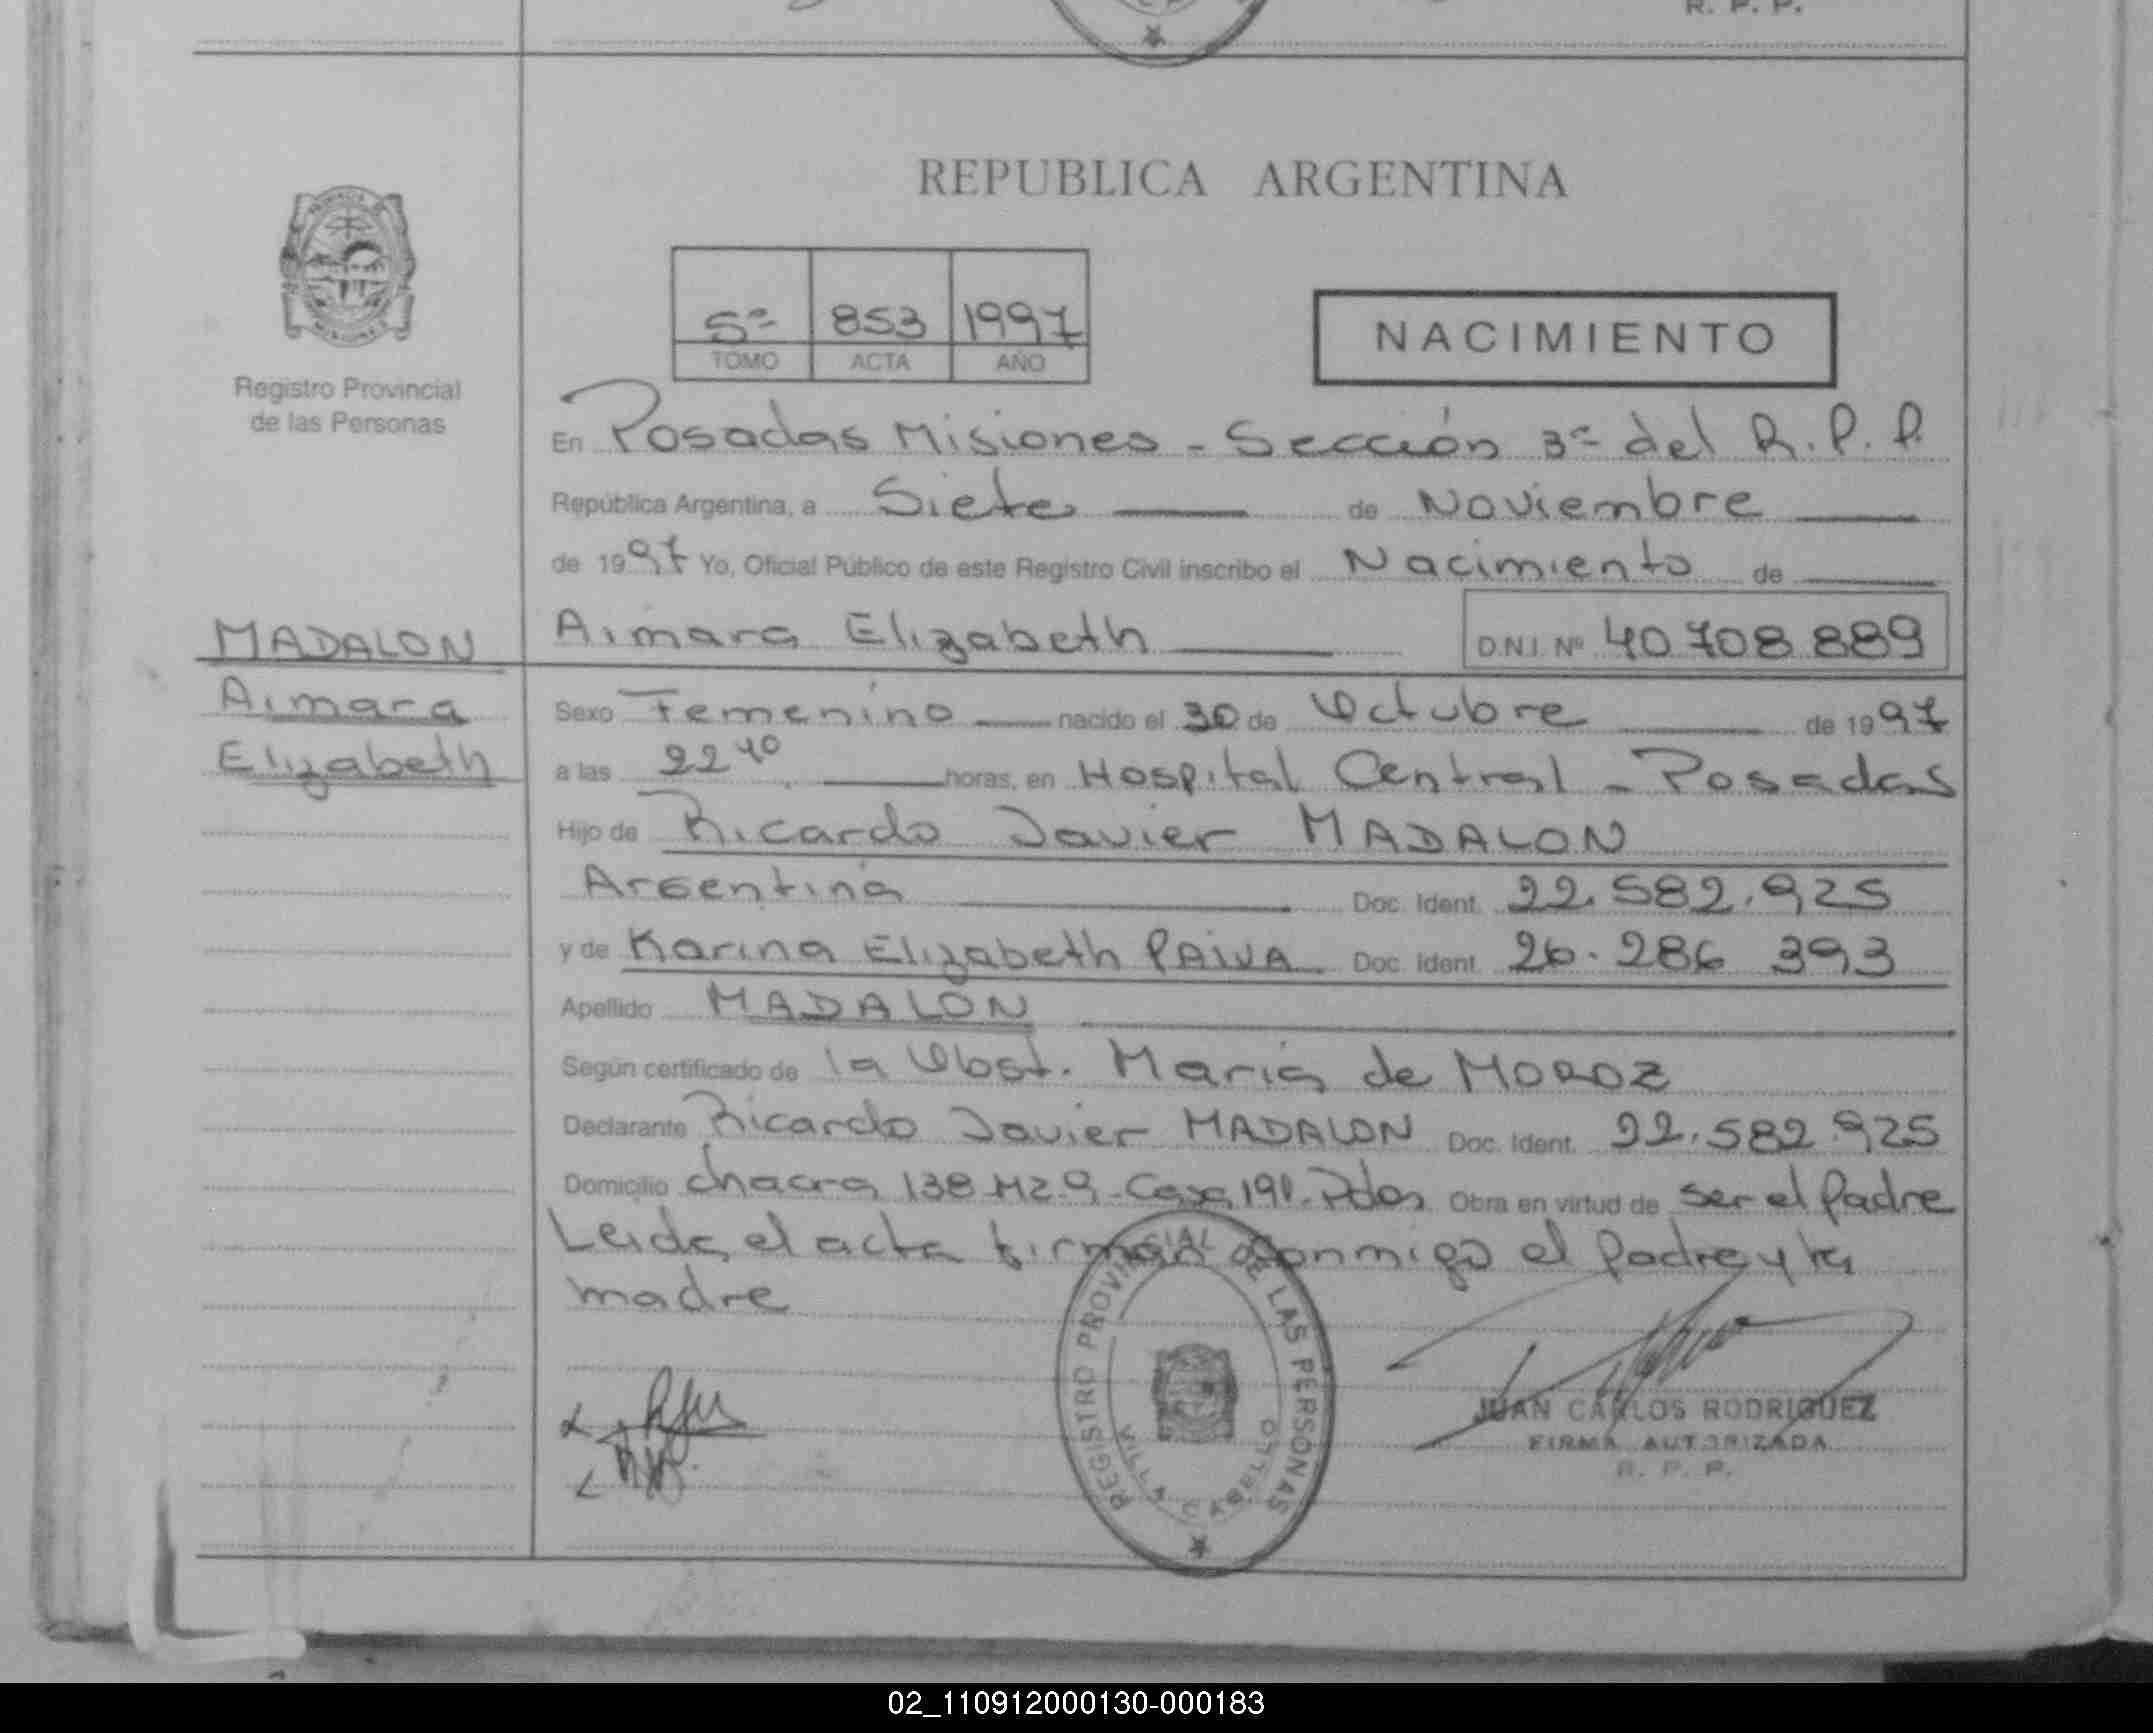 R. P. P.
REPUBLICA ARGENTINA
5º 853 1997
TOMO ACTA AÑO
NACIMIENTO
Registro Provincial
de las Personas
En Posadas Misiones - Sección 3ª del R.P.P.
República Argentina, a Siete de Noviembre
de 1997 Yo, Oficial Público de este Registro Civil inscribo el Nacimiento de
MADALON
Aimara
Elizabeth
Aimara Elizabeth D.N.I. Nº 40 708 889
Sexo Femenino nacido el 30 de Octubre de 1997
a las 22 40 horas, en Hospital Central - Posadas
Hijo de Ricardo Javier MADALON
Argentina Doc. Ident. 22.582.925
y de Karina Elizabeth PAIVA Doc. Ident. 26.286 393
Apellido MADALON
Según certificado de la Obst. María de MOROZ
Declarante Ricardo Javier MADALON Doc. Ident. 22.582.925
Domicilio chacra 138 Mz 9 - Casa 191 - Pdas Obra en virtud de ser el Padre
Leida el acta firman conmigo el Padre y la
madre
REGISTRO PROVINCIAL DE LAS PERSONAS
VILLA CABELLO
JUAN CARLOS RODRIGUEZ
FIRMA AUTORIZADA
R. P. P.
02_110912000130-000183